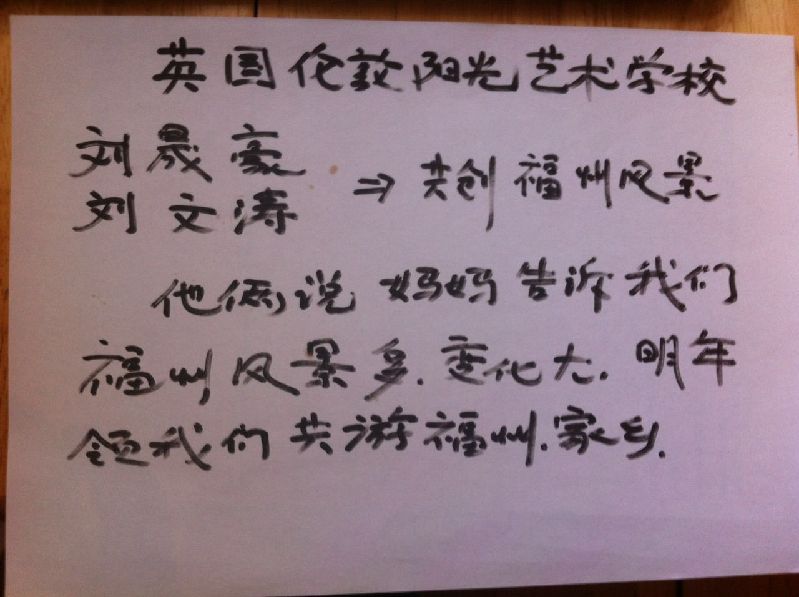 英国伦敦阳光艺术学校
刘晟豪
刘文涛 ⇒ 共创福州风景
他俩说妈妈告诉我们
福州风景多.变化大.明年
领我们共游福州.家乡.